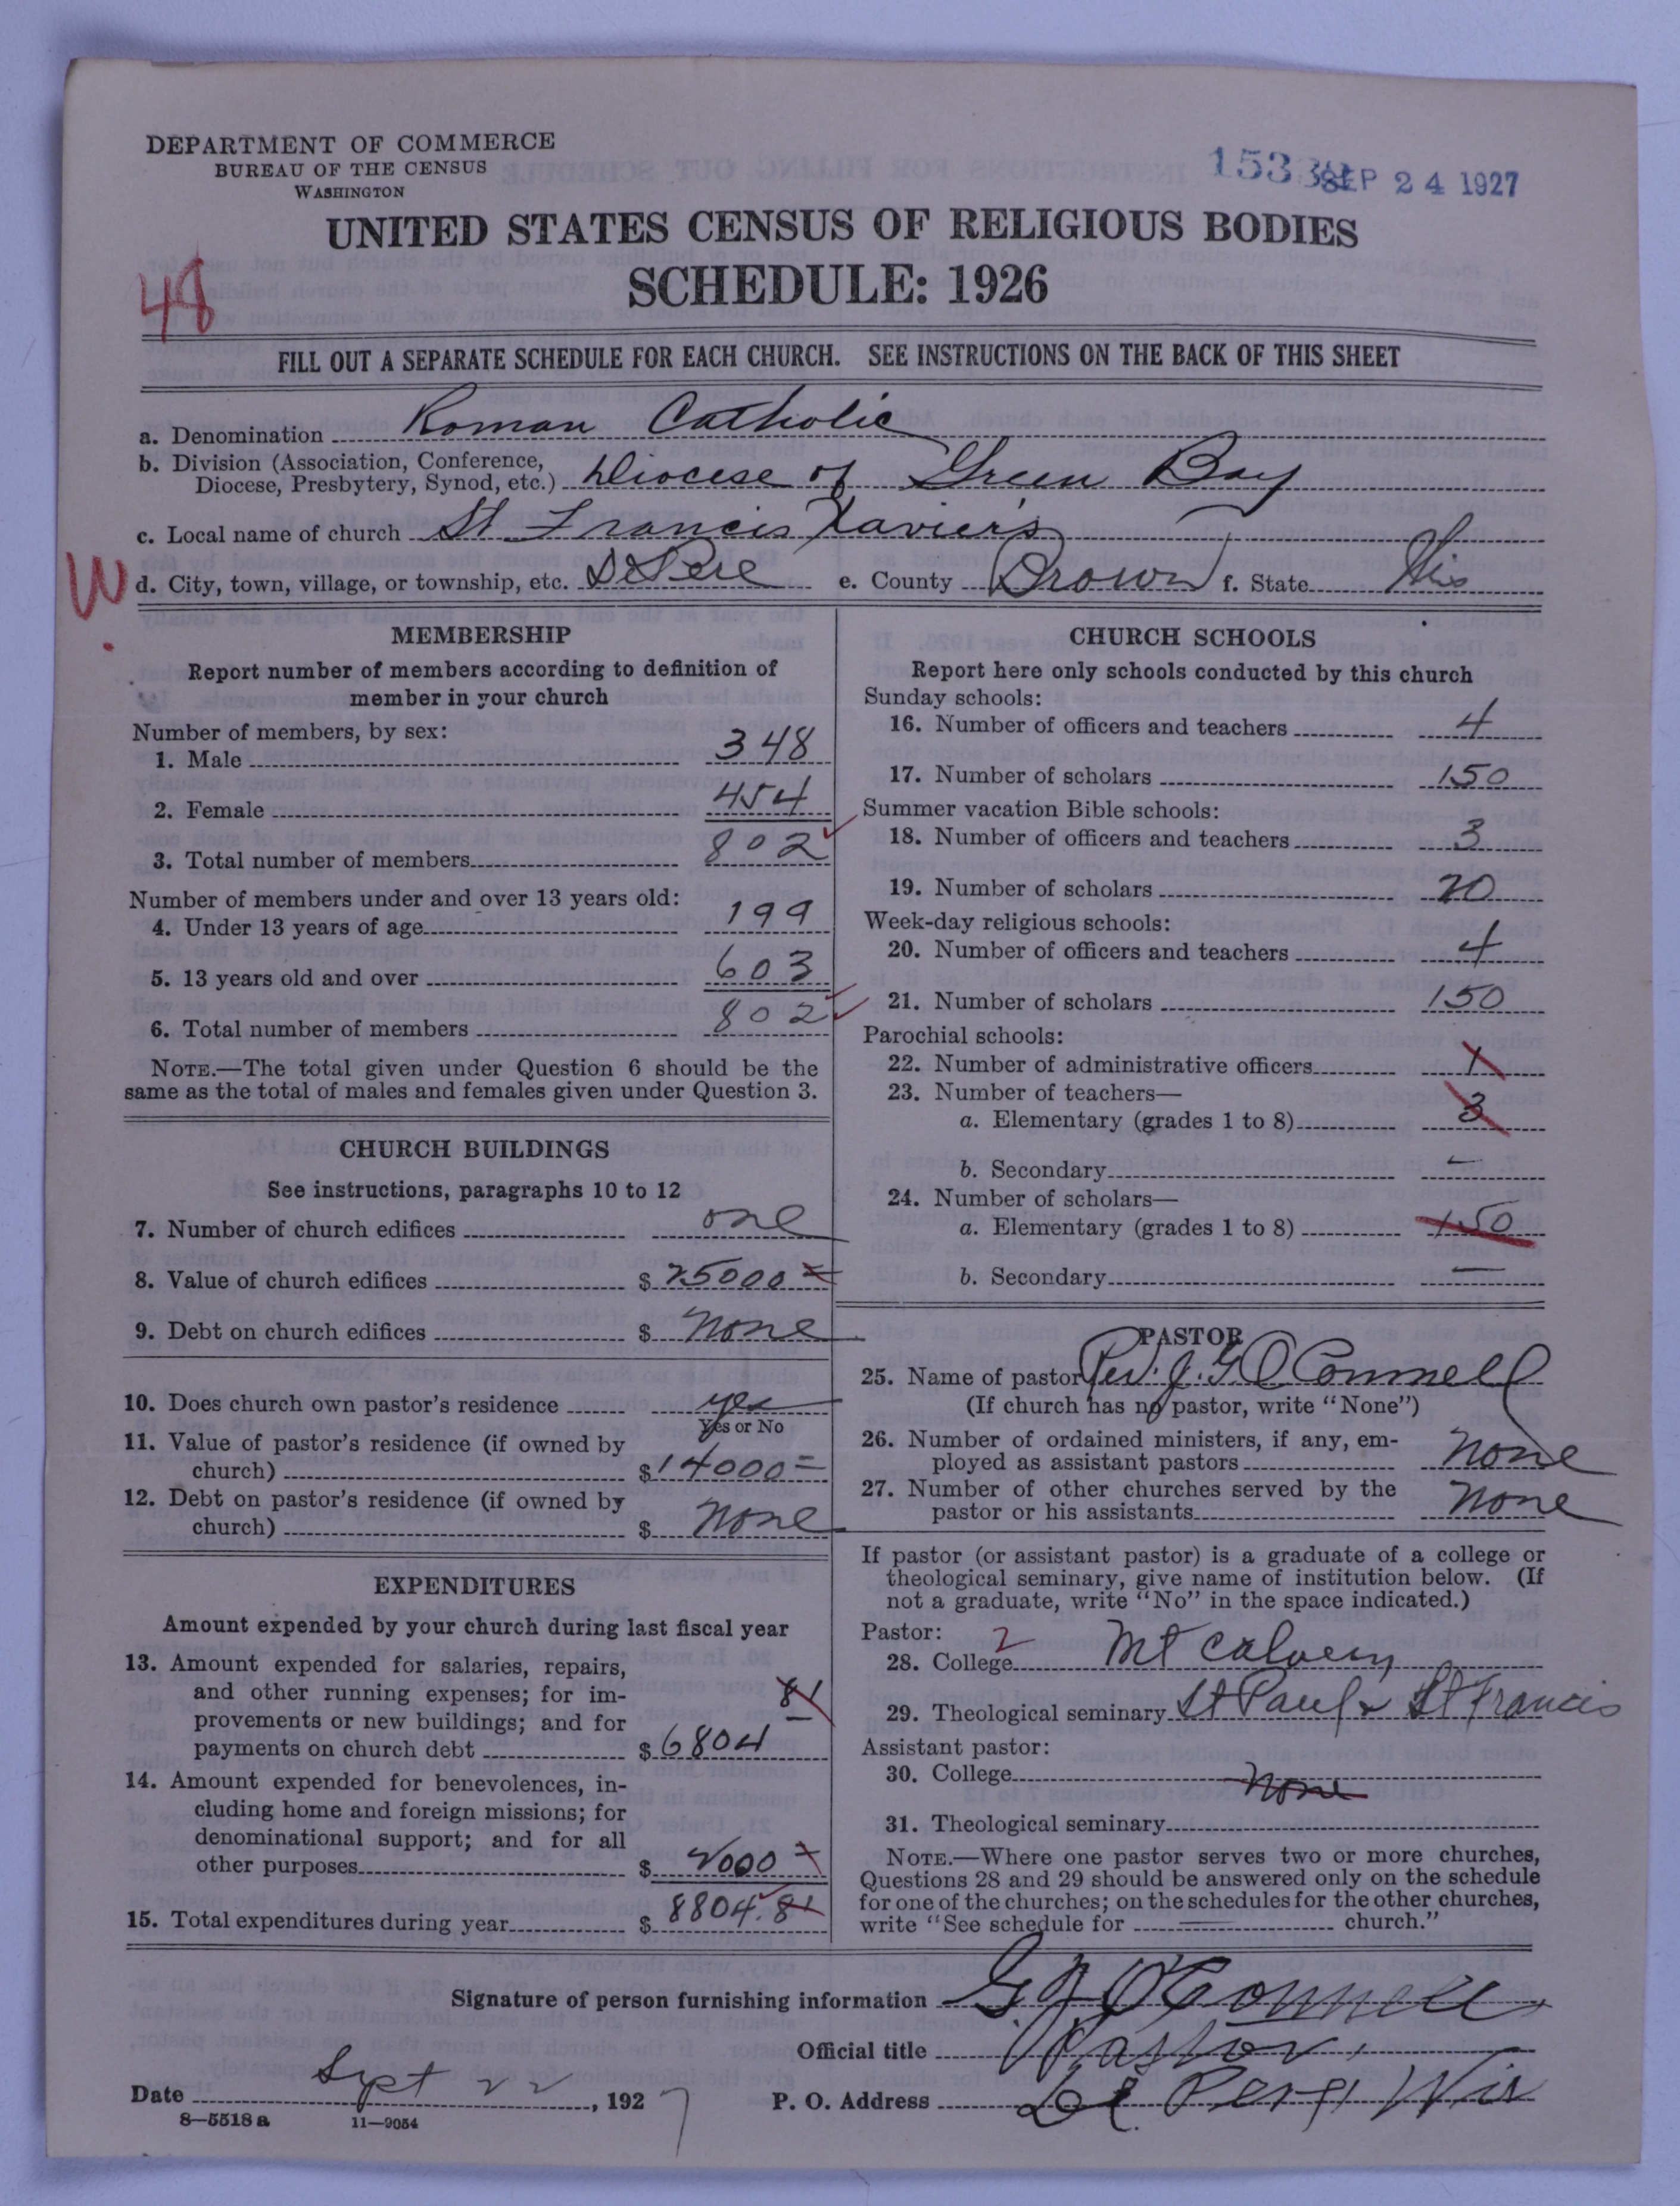 DEPARTMENT OF COMMERCE
BUREAU OF THE CENSUS
WASHINGTON
SEP 24 1927
UNITED STATES CENSUS OF RELIGIOUS BODIES
SCHEDULE: 1926
48
FILL OUT A SEPARATE SCHEDULE FOR EACH CHURCH. SEE INSTRUCTIONS ON THE BACK OF THIS SHEET
a. Denomination Roman Catholic
b. Division (Association, Conference,
Diocese, Presbytery, Synod, etc.) Diocese of Green Bay
c. Local name of church St Francis Xavier's
W
d. City, town, village, or township, etc. DePere e. County Brown f. State Wis
MEMBERSHIP
Report number of members according to definition of
member in your church
Number of members, by sex:
1. Male 348
2. Female 454
3. Total number of members 802
Number of members under and over 13 years old:
4. Under 13 years of age 199
5. 13 years old and over 603
6. Total number of members 802
NOTE.—The total given under Question 6 should be the
same as the total of males and females given under Question 3.
CHURCH BUILDINGS
See instructions, paragraphs 10 to 12
7. Number of church edifices one
8. Value of church edifices $ 25000
9. Debt on church edifices $ None
10. Does church own pastor's residence yes
Yes or No
11. Value of pastor's residence (if owned by
church) $ 14000
12. Debt on pastor's residence (if owned by
church) $ None
EXPENDITURES
Amount expended by your church during last fiscal year
13. Amount expended for salaries, repairs,
and other running expenses; for im-
provements or new buildings; and for
payments on church debt $ 6804 81
14. Amount expended for benevolences, in-
cluding home and foreign missions; for
denominational support; and for all
other purposes $ 2000
15. Total expenditures during year $ 8804.81
CHURCH SCHOOLS
Report here only schools conducted by this church
Sunday schools:
16. Number of officers and teachers 4
17. Number of scholars 150
Summer vacation Bible schools:
18. Number of officers and teachers 3
19. Number of scholars 20
Week-day religious schools:
20. Number of officers and teachers 4
21. Number of scholars 150
Parochial schools:
22. Number of administrative officers 1
23. Number of teachers—
a. Elementary (grades 1 to 8) 3
b. Secondary —
24. Number of scholars—
a. Elementary (grades 1 to 8) 150
b. Secondary —
PASTOR
25. Name of pastor Rev. J. G O Connell
(If church has no pastor, write "None")
26. Number of ordained ministers, if any, em-
ployed as assistant pastors None
27. Number of other churches served by the
pastor or his assistants None
If pastor (or assistant pastor) is a graduate of a college or
theological seminary, give name of institution below. (If
not a graduate, write "No" in the space indicated.)
Pastor: 2
28. College Mt Calvery
29. Theological seminary St Paul & St Francis
Assistant pastor:
30. College None
31. Theological seminary
NOTE.—Where one pastor serves two or more churches,
Questions 28 and 29 should be answered only on the schedule
for one of the churches; on the schedules for the other churches,
write "See schedule for church."
Signature of person furnishing information G. J O'Connell
Official title Pastor
Date Sept 22, 1927 P. O. Address De Pere, Wis
8—5518 a 11—9054